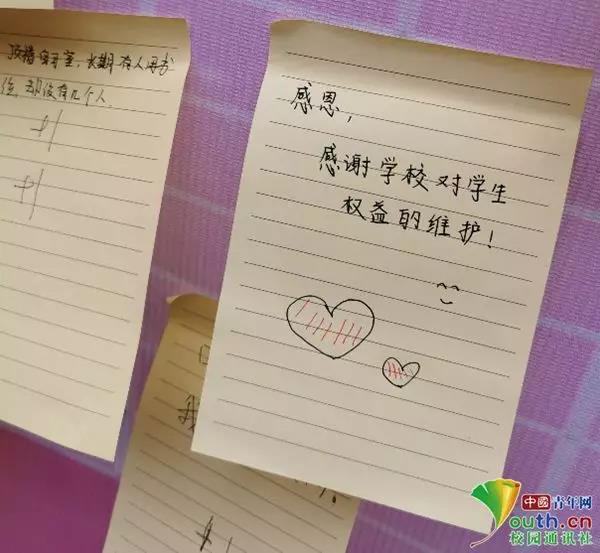 段楼自习室，长期有人用书
位，却没有几个人
感恩，
感谢学校对学生
权益的维护！
我
中国青年网
Youth.cn
校园通讯社